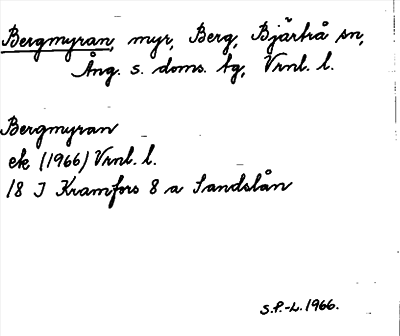 Bergmyran, myr, Berg, Bjärtrå sn,
Ång. s. doms. tg, Vrnl. l.
Bergmyran
ek (1966) Vrnl. l.
18 I Kramfors 8 a Sandslån
S.P.-L. 1966.